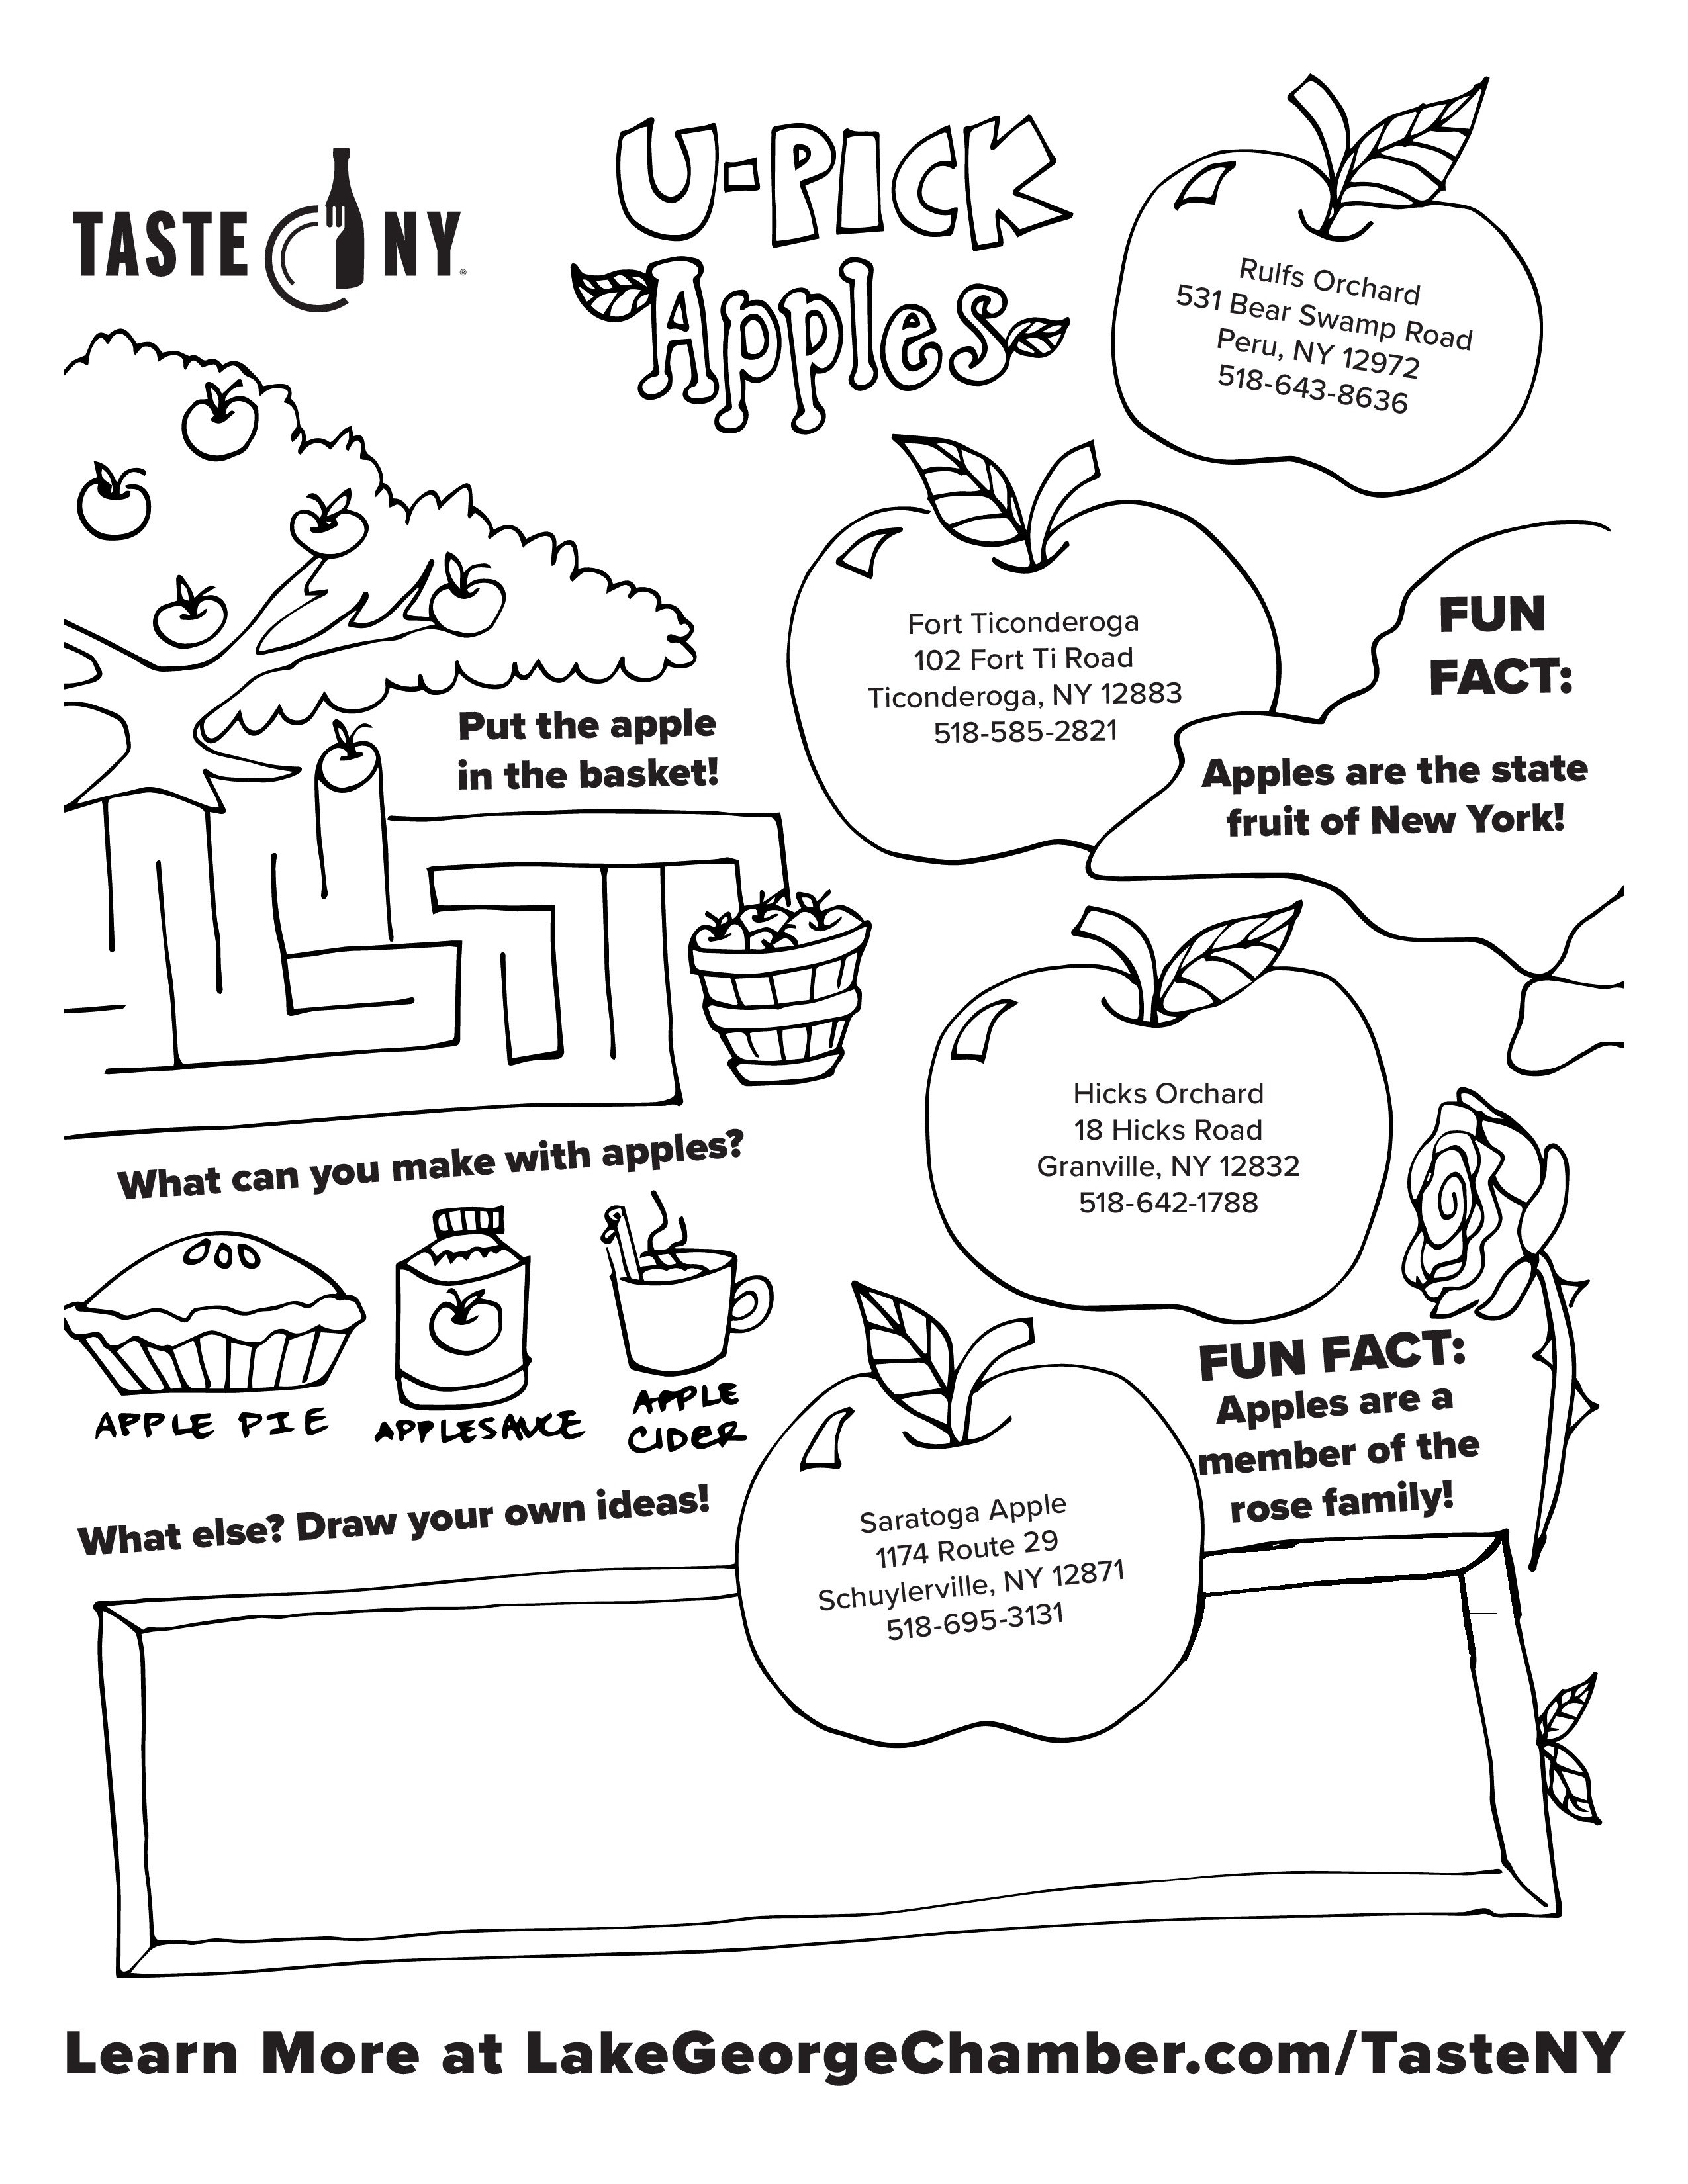 TASTE NY®
U-PICK
Apples
Rulfs Orchard
531 Bear Swamp Road
Peru, NY 12972
518-643-8636
Fort Ticonderoga
102 Fort Ti Road
Ticonderoga, NY 12883
518-585-2821
FUN
FACT:
Apples are the state
fruit of New York!
Put the apple
in the basket!
Hicks Orchard
18 Hicks Road
Granville, NY 12832
518-642-1788
What can you make with apples?
APPLE PIE
APPLESAUCE
APPLE
CIDER
FUN FACT:
Apples are a
member of the
rose family!
What else? Draw your own ideas!
Saratoga Apple
1174 Route 29
Schuylerville, NY 12871
518-695-3131
Learn More at LakeGeorgeChamber.com/TasteNY